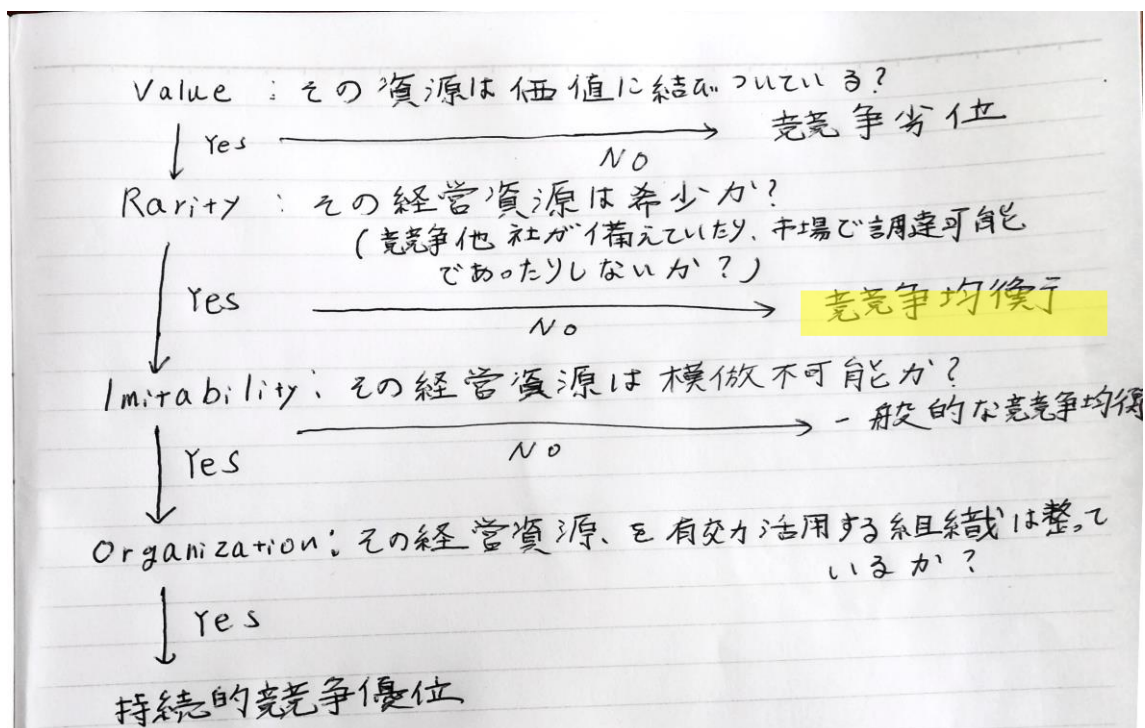 Value : その資源は価値に結びついている?
Yes
NO
競争劣位
Rarity : その経営資源は希少か?
(競争他社が備えていたり、市場で調達可能
であったりしないか?)
Yes
NO
競争均衡
Imitability : その経営資源は模倣不可能か?
Yes
NO
一般的な競争均衡
Organization : その経営資源、を有効活用する組織は整って
いるか?
Yes
持続的競争優位